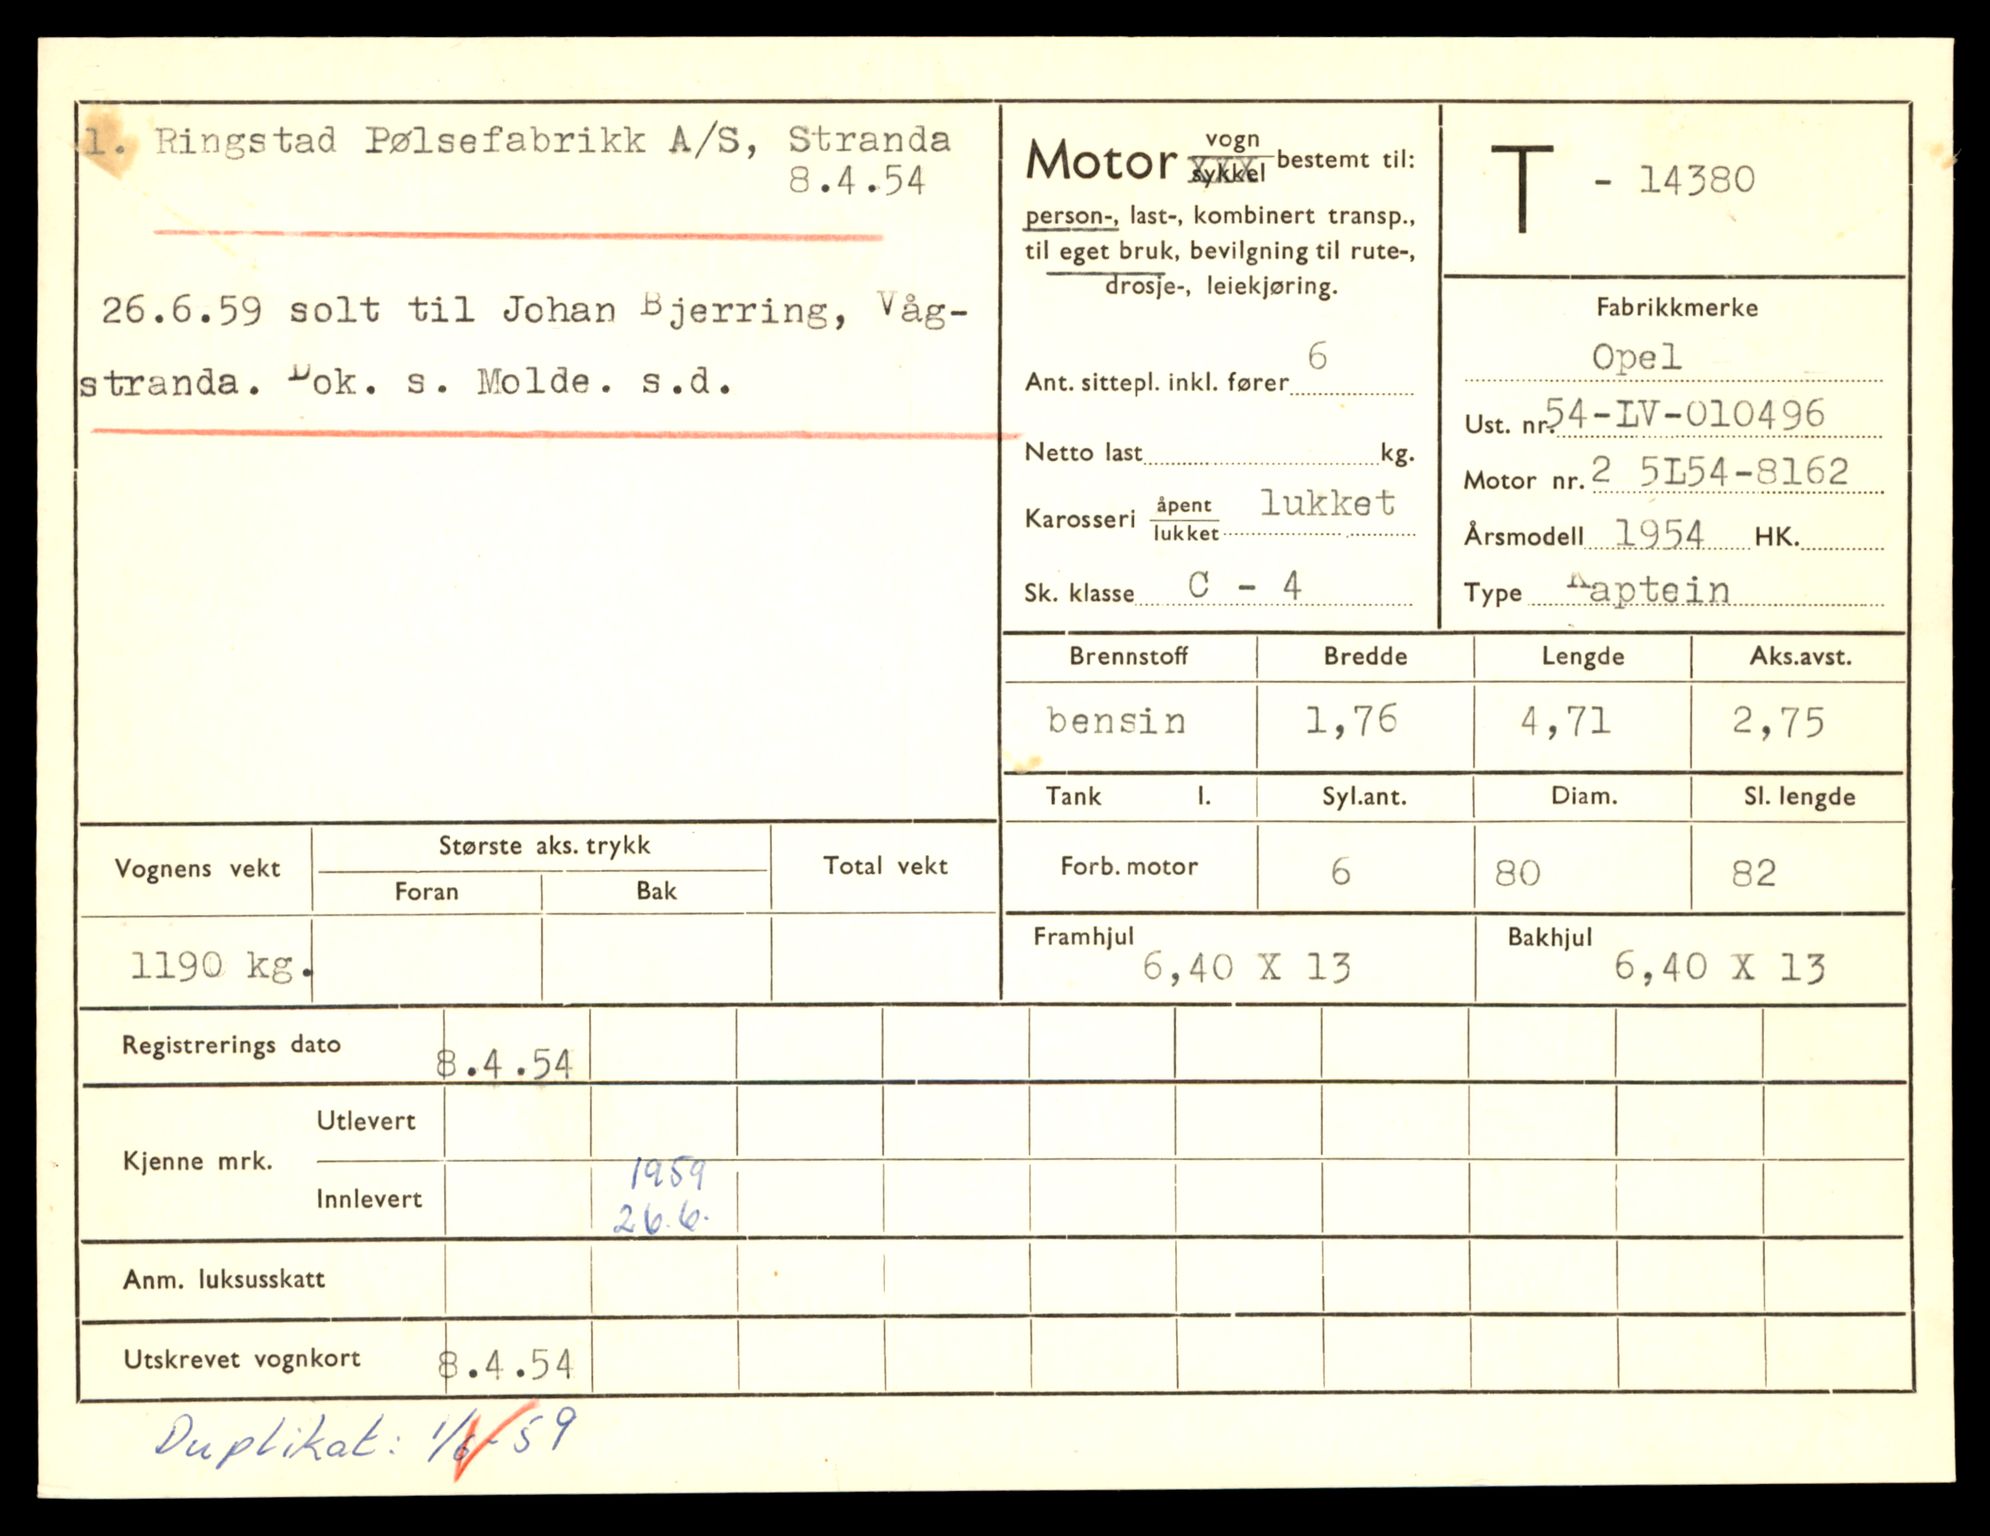 1. Ringstad Pølsefabrikk A/S, Stranda
8.4.54
26.6.59 solt til Johan Bjerring, Våg-
stranda. Dok. s. Molde. s.d.
Motor vogn/sykkel bestemt til:
person-, last-, kombinert transp.,
til eget bruk, bevilgning til rute-,
drosje-, leiekjøring.
Ant. sittepl. inkl. fører 6
Netto last kg.
Karosseri åpent/lukket lukket
Sk. klasse C - 4
T - 14380
Fabrikkmerke
Opel
Ust. nr. 54-LV-010496
Motor nr. 2 5L54-8162
Årsmodell 1954 HK.
Type Kaptein
Brennstoff Bredde Lengde Aks.avst.
bensin 1,76 4,71 2,75
Tank l. Syl.ant. Diam. Sl. lengde
Forb. motor 6 80 82
Framhjul 6,40 X 13 Bakhjul 6,40 X 13
Vognens vekt Største aks. trykk Total vekt
Foran Bak
1190 kg.
Registrerings dato 8.4.54
Kjenne mrk. Utlevert
Innlevert 1959
26.6.
Anm. luksusskatt
Utskrevet vognkort 8.4.54
Duplikat: 1/6-59